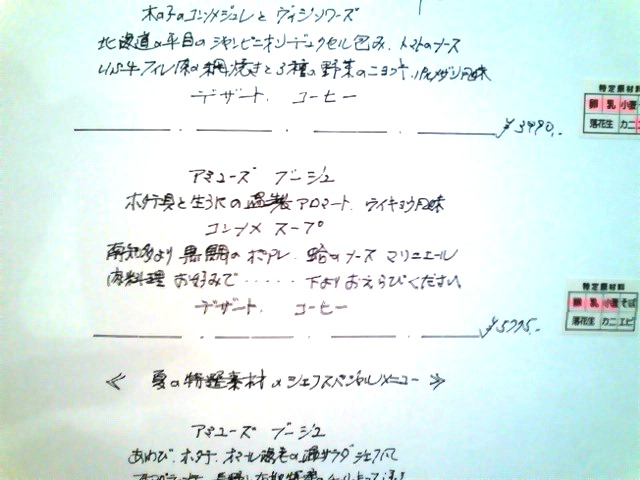 木の子のコンソメジュレと ヴィシソワーズ
北海道の平目のシャンピニオンデュクセル包み、トマトのソース
US牛フィレ肉の網焼きと3種の野菜のニョッキ、パルメザン風味
デザート、コーヒー
¥3990.-
特定原材料
卵 乳 小麦
落花生 カニ
アミューズ ブージュ
帆立貝と生うにの 燻製 アロマート、ウイキョウ風味
コンソメ スープ
南知多より 黒鯛のポアレ、蛤のソース マリニエール
肉料理 お好みで ‥‥‥ 下よりおえらびください
デザート、コーヒー
¥5775.-
特定原材料
卵 乳 小麦 そば
落花生 カニ エビ
≪ 夏の特選素材のシェフスペシャルメニュー ≫
アミューズ ブージュ
あわび、ホタテ、オマール海老の サラダ シェフ